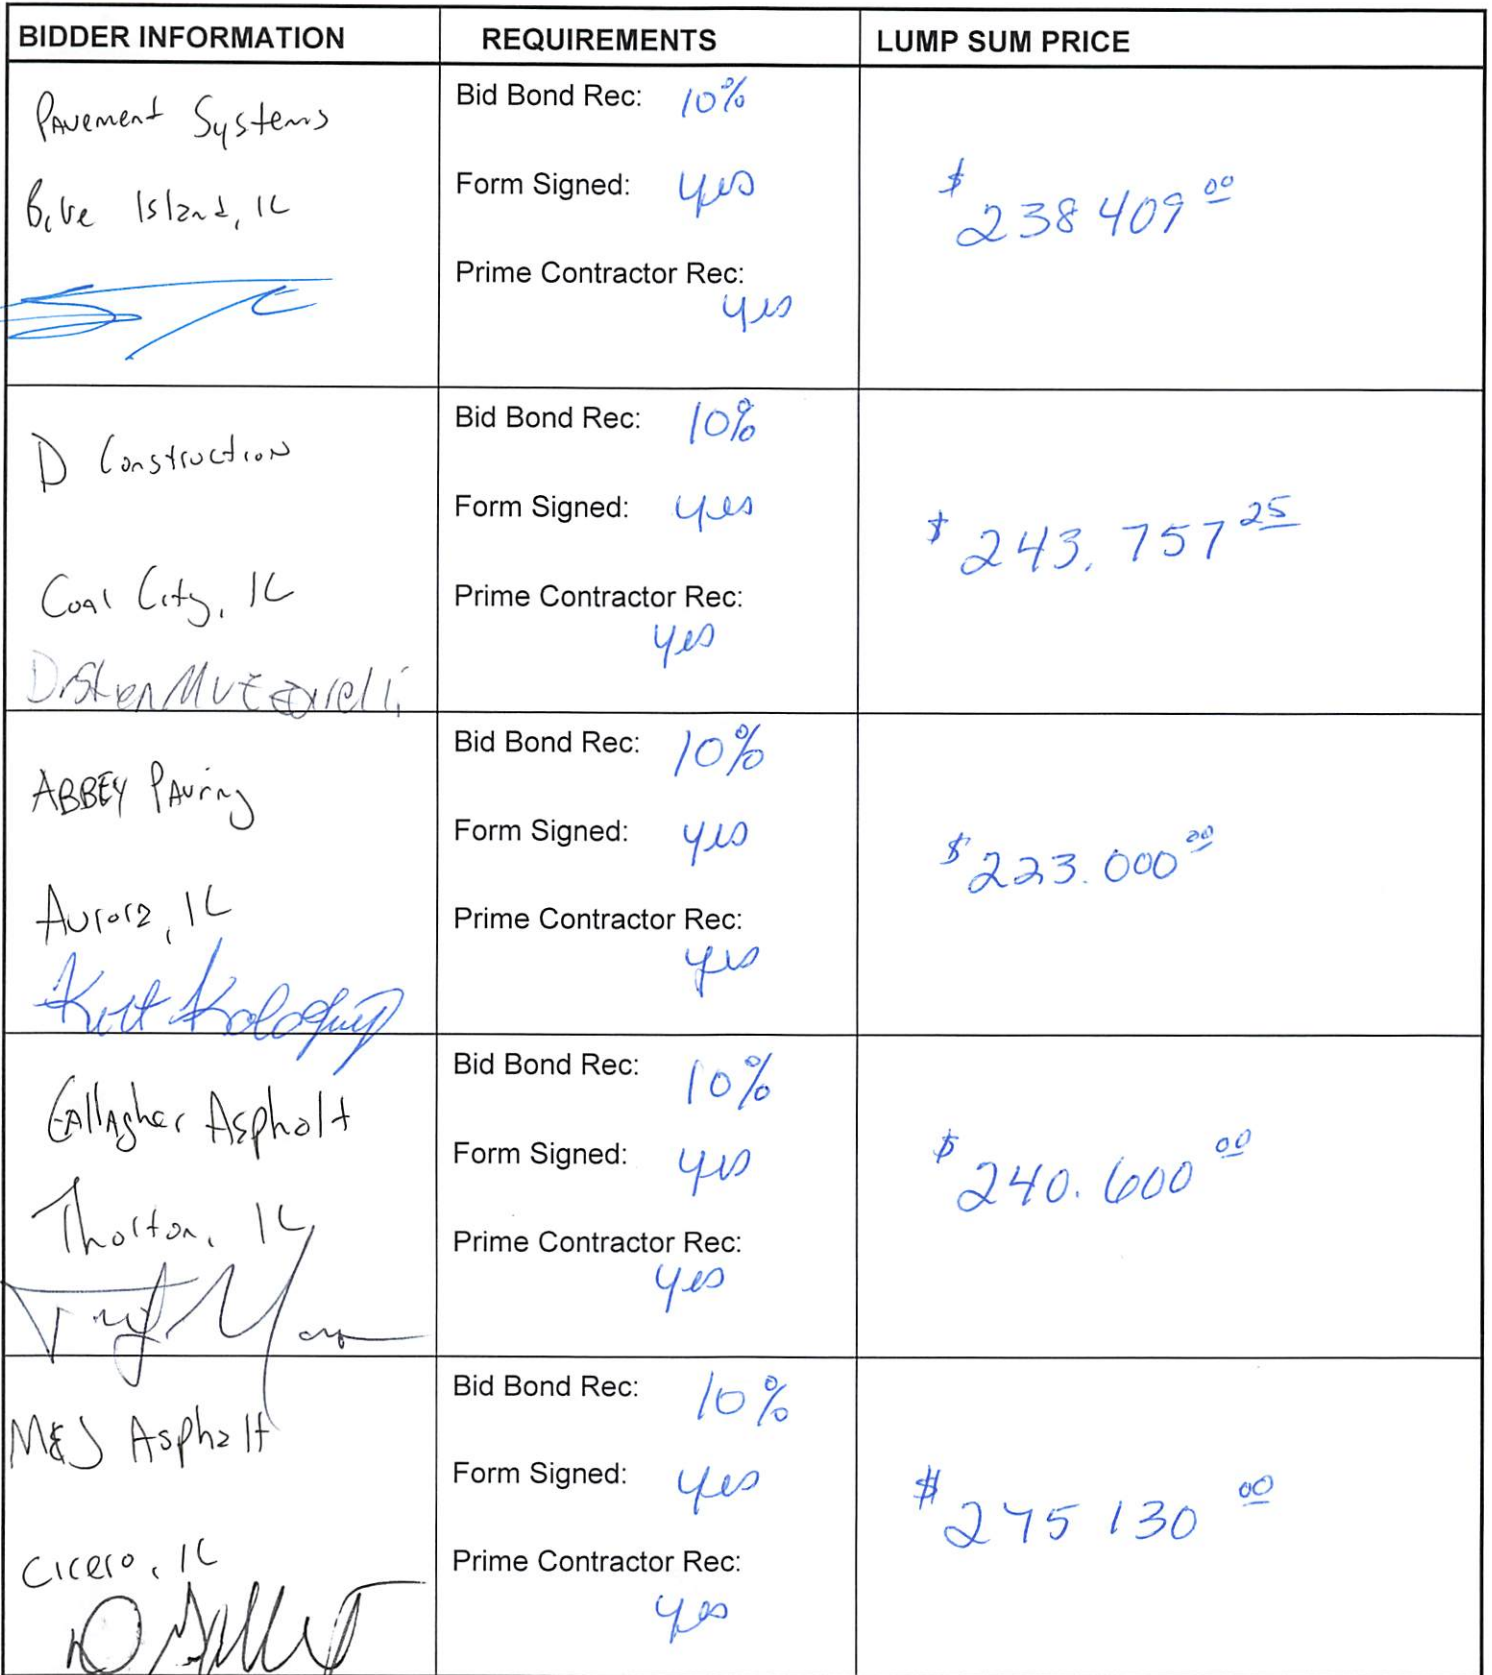 BIDDER INFORMATION REQUIREMENTS LUMP SUM PRICE
Pavement Systems
Blue Island, IL
Bid Bond Rec: 10%
Form Signed: yes
Prime Contractor Rec:
yes
$ 238 409 00
D Construction
Coal City, IL
Bid Bond Rec: 10%
Form Signed: yes
Prime Contractor Rec:
yes
$ 243,757 25
ABBEY PAving
Aurora, IL
Kurt
Bid Bond Rec: 10%
Form Signed: yes
Prime Contractor Rec:
yes
$ 223.000 00
Gallagher Asphalt
Thorton, IL
Bid Bond Rec: 10%
Form Signed: yes
Prime Contractor Rec:
yes
$ 240.600 00
M&J Asphalt
Cicero, IL
Bid Bond Rec: 10%
Form Signed: yes
Prime Contractor Rec:
yes
$ 275 130 00